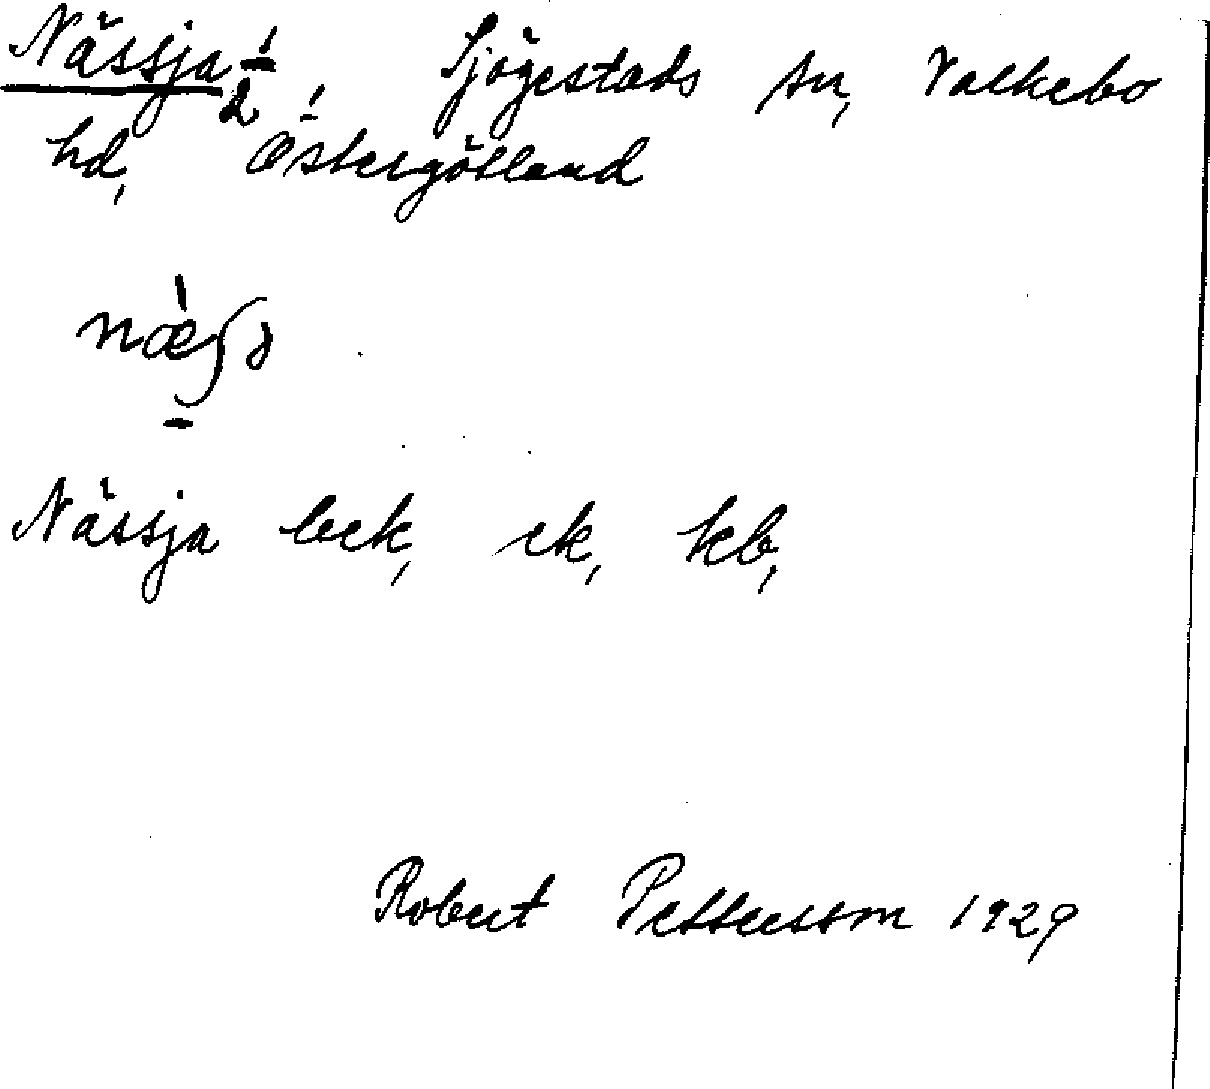 Nässja ½, Sjögestads sn, Valkebo
hd, Östergötland
næ̀ʃə
Nässja bek, ek, kb,
Robert Pettersson 1929